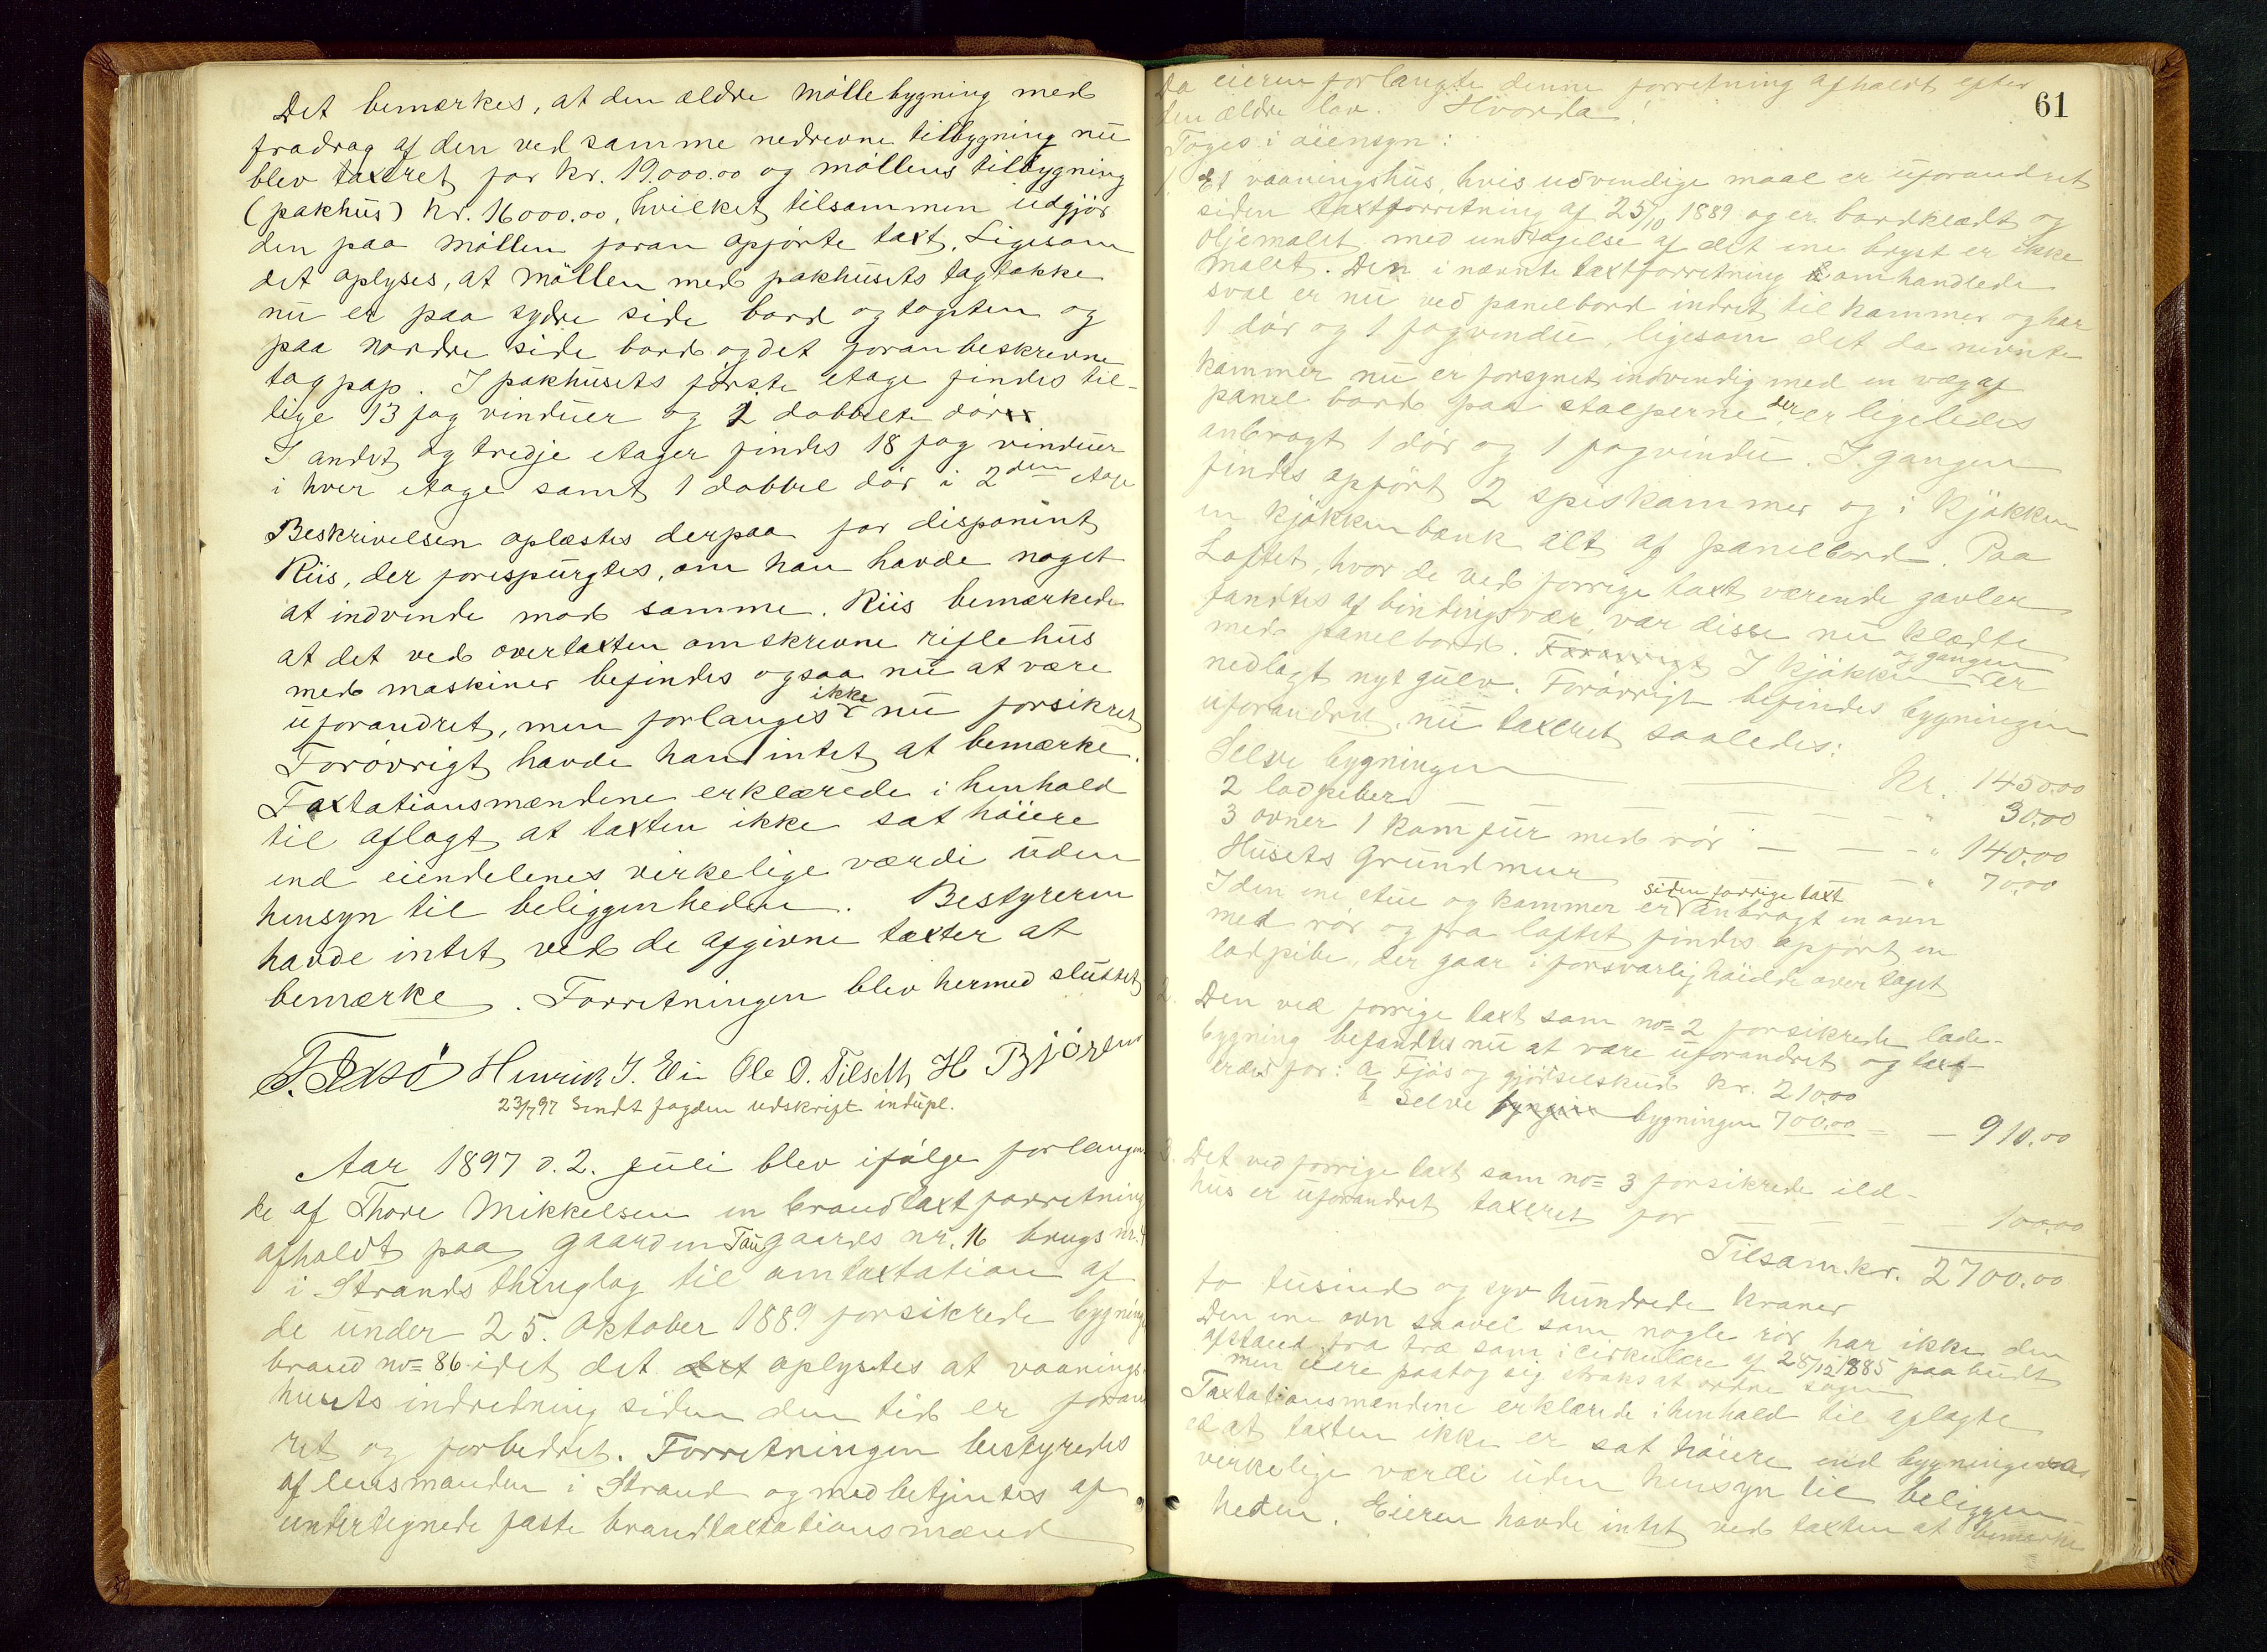 Det bemærkes, at den ældre møllebygning med
fradrag af den ved samme nedrevne tilbygning nu
blev taxeret for kr. 19.000.00 og møllens tilbygning
(pakhus) kr. 16000.00, hvilket tilsammen udgjør
den paa møllen foran opførte taxt. Ligesom
det oplyses, at møllen med pakhusets tagtække
nu er paa sydre side bord og tagsten og
paa nordre side bord og det foran beskrevne
tagpap. I pakhusets første etage findes til-
lige 13 fag vinduer og 2 dobbelte døre
I andet og tredje etager findes 18 fag vinduer
i hver etage samt 1 dobbel dør i 2den etage
Beskrivelsen oplæstes derpaa for disponent
Riis, der forespurgtes, om han havde noget
at indvende mod samme. Riis bemærkede
at det ved overtaxten omskrevne riflehus
med maskiner befindes ogsaa nu at være
uforandret, men forlanges ikke nu forsikret
Forøvrigt havde han intet at bemærke.
Taxtationsmændene erklærede i henhold
til aflagt at taxten ikke sat høiere
end eiendelenes virkelige værdi uden
hensyn til beliggenheden. Bestyreren
havde intet ved de afgivne taxter at
bemærke. Forretningen blev hermed sluttet
Henrik J. Eie Ole O. H Bjøren
23/7 97 Sendt fogden udskrift in dupl.
Aar 1897 d. 2. Juli blev ifølge forlangen-
de af Thore Mikkelsen en brandtaxtforretning
afholdt paa gaarden Tau gaards nr. 16 brugs nr.
i Strands thinglag til omtaxtation af
de under 25. Oktober 1889 forsikrede bygninge
brand no= 86 idet det det oplystes at vaanings-
husets indredning siden den tid er foran
ret og forbedret. Forretningen bestyredes
af lensmanden i Strand og medbetjentes af
undertegnede faste brandtaxtationsmænd
61
Da eieren forlangte denne forretning afholdt efter
den ældre lov. Hvorda!
Toges i øiensyn:
1. Et vaaningshus, hvis udvendige maal er uforandret
siden taxtforretning af 25/10 1889 og er bordklædt og
oljemalet, med undtagelse af det ene bryst er ikke
malet. Den i nævnte taxtforretning omhandlede
sval er nu ved panelbord indret til kammer og har
1 dør og 1 fag vindu, ligesom det da nevnte
kammer nu er forsynet indvendig med en væg af
panel bord paa stolperne, der er ligeledes
anbragt 1 dør og 1 fag vindu. I gangen
findes opført 2 spiskammer og i kjøkken
en kjøkkenbænk alt af panelbord. Paa
Loftet, hvor de ved forrige taxt værende gavler
fandtes af bindingsvær, var disse nu klædte
med panelbord. Forøvrigt I kjøkken og gangen er
nedlagt nyt gulv. Forøvrigt befindes bygningen
uforandret, nu taxeret saaledes:
Selve bygningen — — Kr. 1450.00
2 lodpiber — — — — " 30.00
3 ovner 1 komfur med rør — — — " 140.00
Husets Grundmur — — " 70.00
I den ene stue og kammer er siden forrige taxt anbragt en ovn
med rør og fra loftet findes opført en
lodpibe, der gaar i forsvarlig høide over taget
2. Den ved forrige taxt som no= 2 forsikrede lade-
bygning befandtes nu at være uforandret og tax-
eredes for: a Fjøs og gjødselskud kr. 210.00
b Selve bygningen 700.00 = — 910.00
3. Det ved forrige taxt som no= 3 forsikrede ild-
hus er uforandret taxeret for — — — 100.00
Tilsam. kr. 2700.00
to tusind og syv hundrede kroner
Den ene ovn saavel som nogle rør har ikke den
afstand fra træ som i cirkulære af 28/12 1885 paabudt
men eiere paatog sig straks at ordne sagen
Taxtationsmændene erklærede i henhold til aflagte
ed at taxten ikke er sat høiere end bygningernes
virkelige værdi uden hensyn til beliggen-
heden. Eieren havde intet ved taxten at bemerke